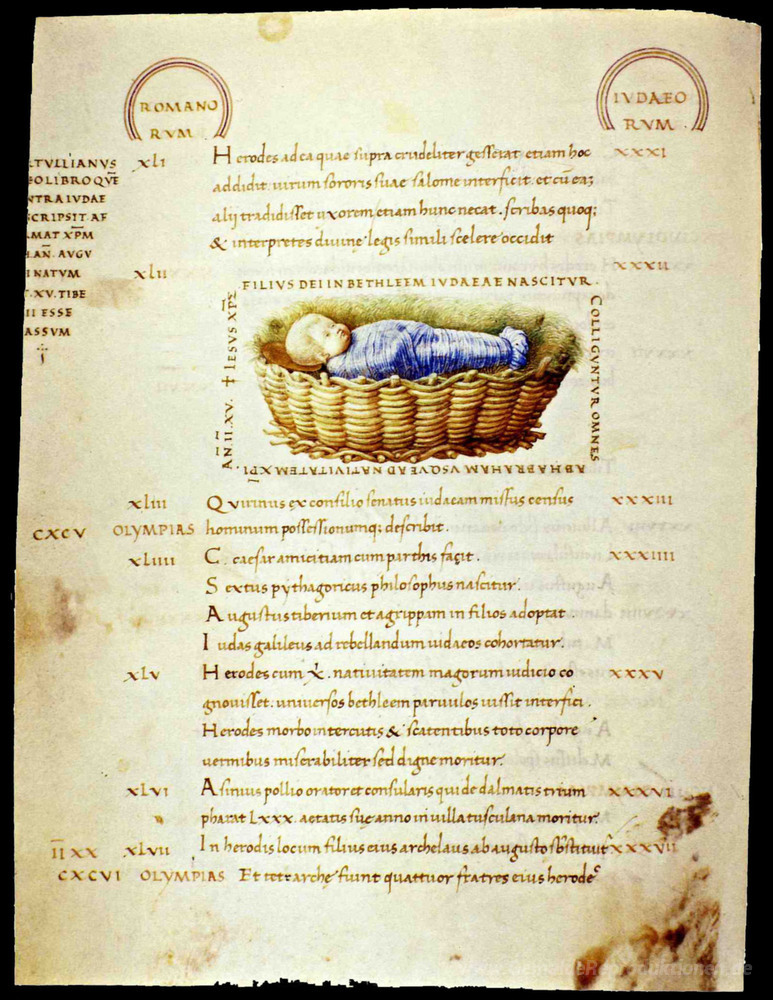 ROMANO
RVM
IVDAEO
RVM
TVLLIANVS
LIBRO QVE
NTRA IVDAE
CRIPSIT AF
MAT XPM
AN. AVGV
NATVM
XV. TIBE
II ESSE
ASSVM
XLI Herodes ad ea quae supra crudeliter gesserat etiam hoc XXXI
addidit. uirum sororis suae salome interficit. et cū eā
alii tradidisset uxorem etiam hunc necat. scribas quoq;
& interpretes diuinę legis simili scelere occidit
XLII XXXII
FILIVS DEI IN BETHLEEM IVDAEAE NASCITVR.
COLLIGVNTVR OMNES
AB HABRAHAM VSQVE AD NATIVITATEM XPI.
AN̄. II. XV. ✝ IESVS XP̄S
XLIII Quirinus ex consilio senatus iudaeam missus census XXXIII
CXCV OLYMPIAS hominum possessionumq; describit.
XLIIII C. caesar amicitiam cum parthis facit. XXXIIII
Sextus pythagoricus philosophus nascitur.
Augustus tiberium et agrippam in filios adoptat
Iudas galileus ad rebellandum iudaeos cohortatur.
XLV Herodes cum natiuitatem magorum iudicio co XXXV
gnouisset. uniuersos bethleem paruulos iussit interfici.
Herodes morbo intercutis & scatentibus toto corpore
uermibus miserabiliter sed digne moritur.
XLVI Asinius pollio orator et consularis qui de dalmatis trium XXXVI
pharat LXXX. aetatis suę anno in uilla tusculana moritur.
IIXX XLVII In herodis locum filius eius archelaus ab augusto sbstituit XXXVII
CXCVI OLYMPIAS Et tetrarchę fuint quattuor fratres eius herode